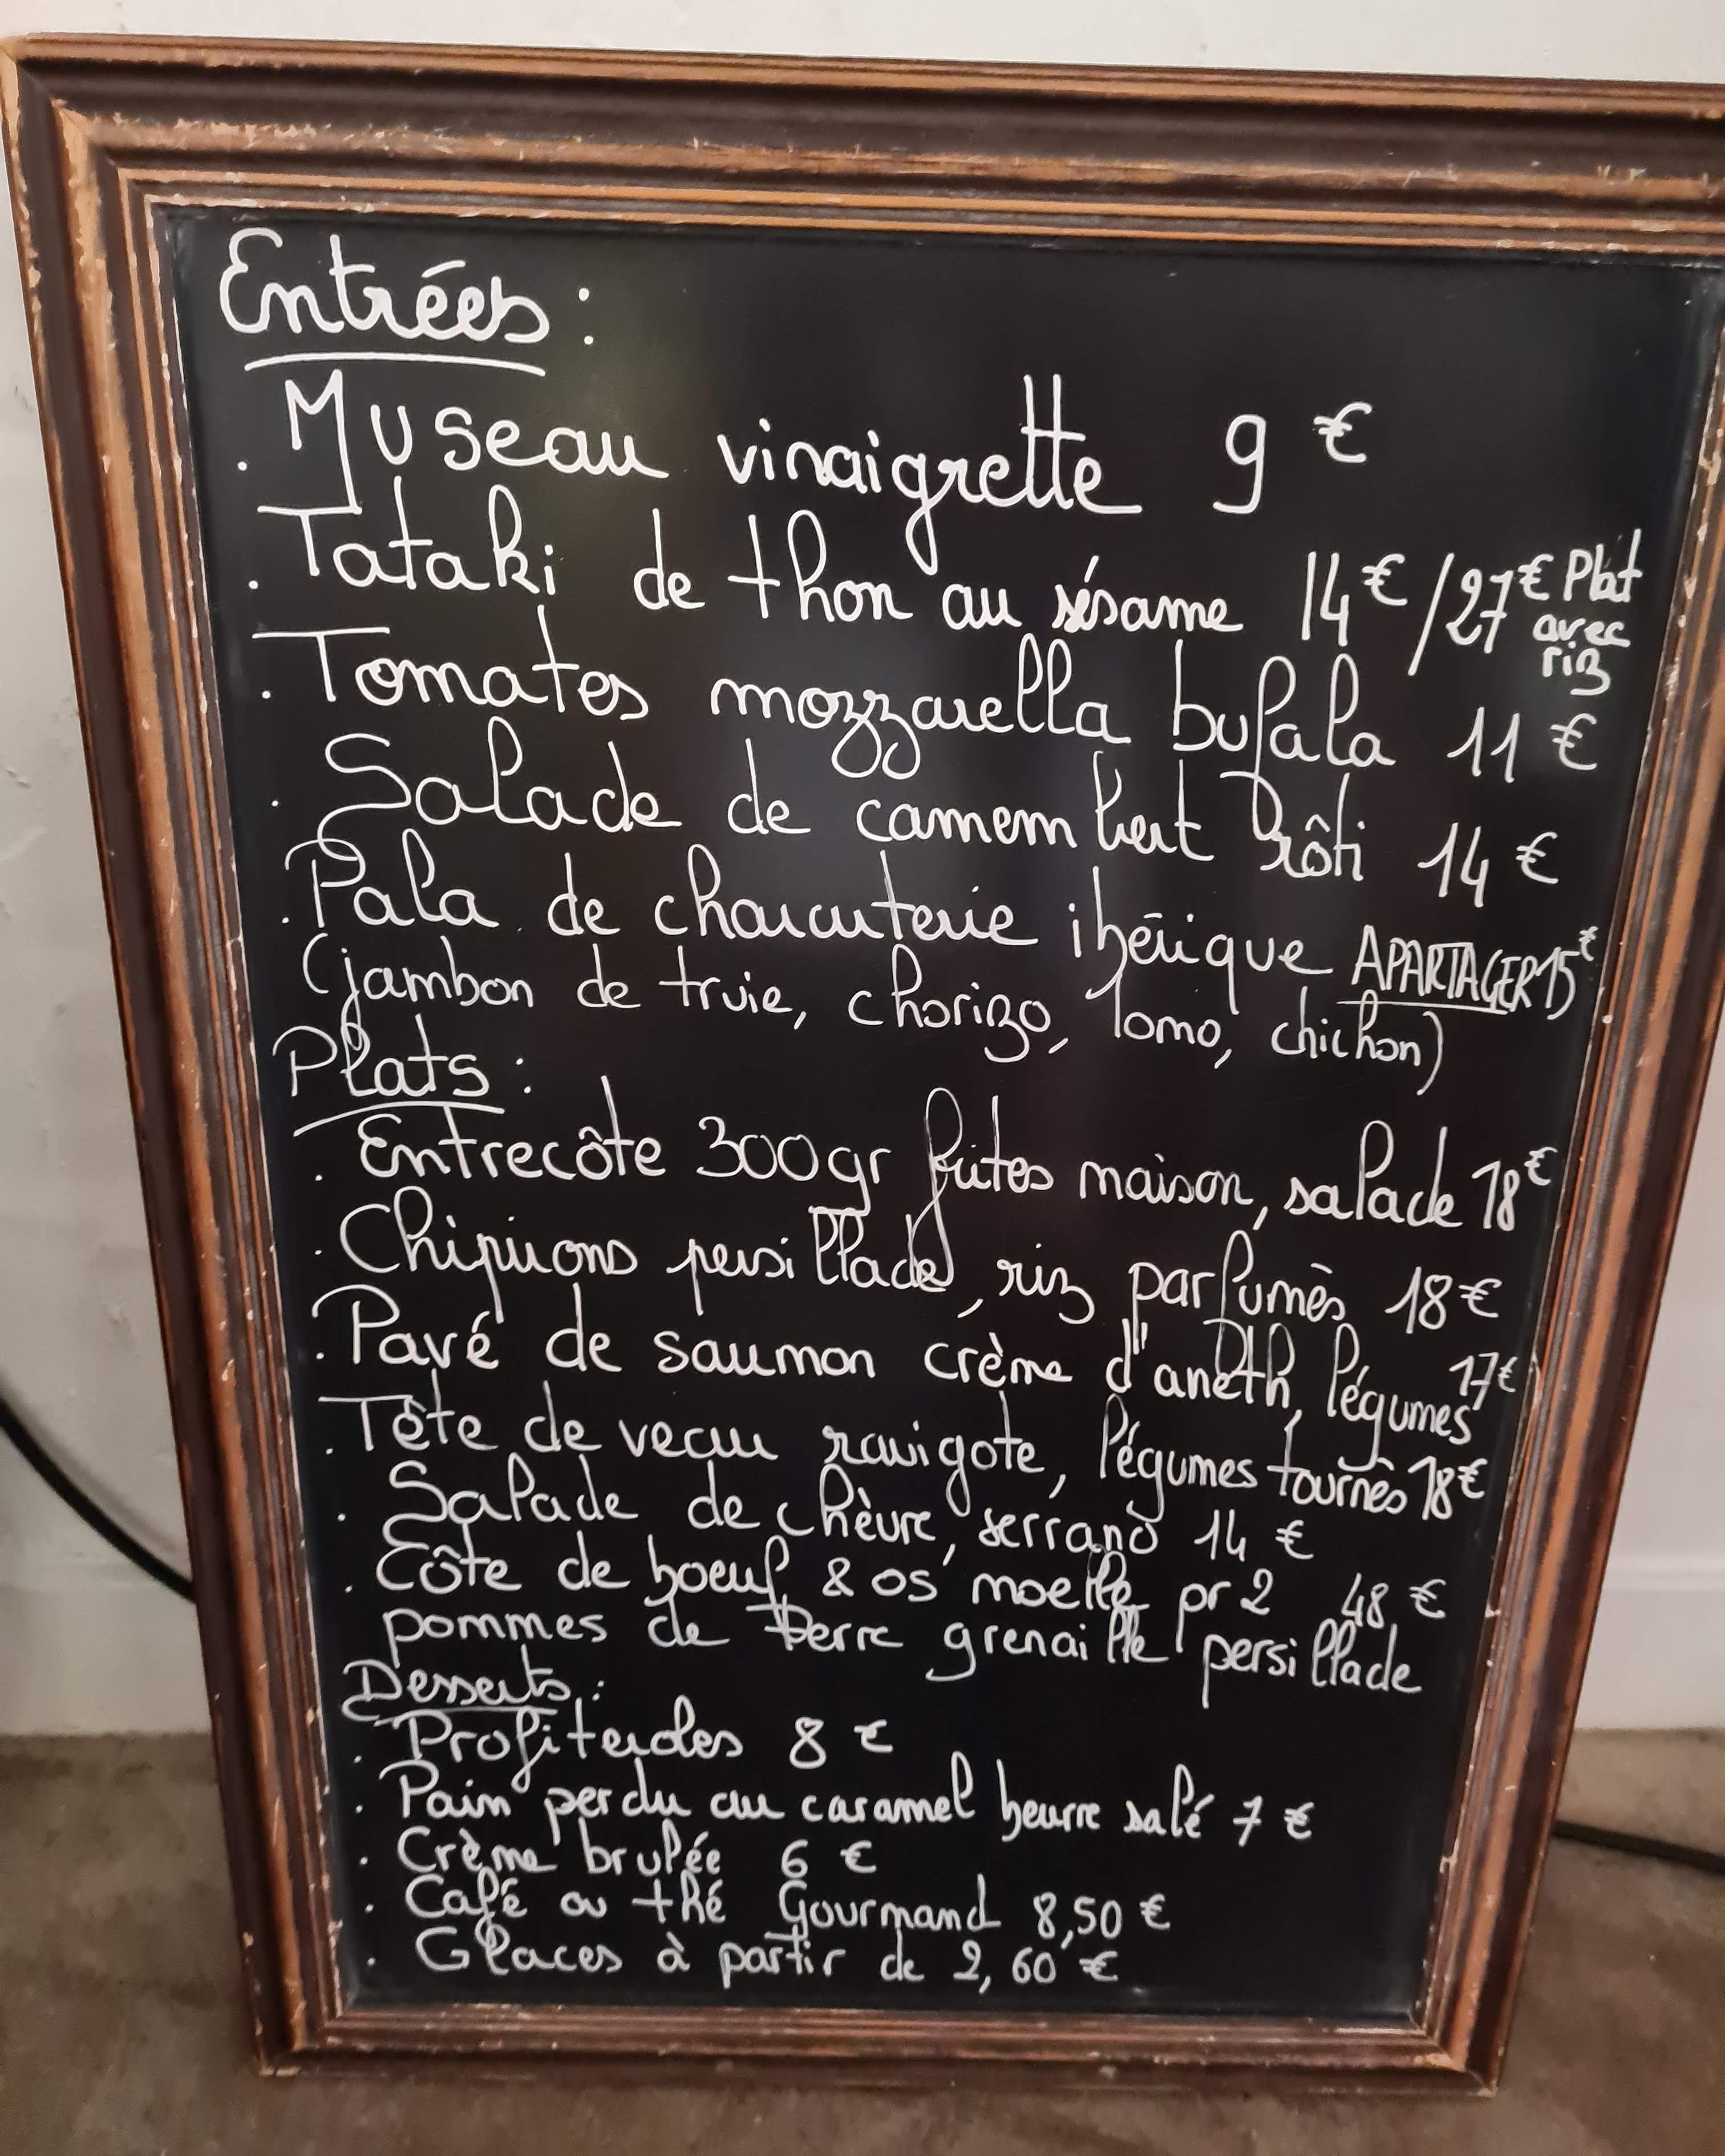 Entrées :
. Museau vinaigrette 9 €
. Tataki de thon au sésame 14 € / 27 € Plat avec riz
. Tomates mozzarella bufala 11 €
. Salade de camembert rôti 14 €
. Pala de charcuterie ibérique A PARTAGER 15 €
(jambon de truie, chorizo, lomo, chichon)
Plats :
. Entrecôte 300gr frites maison, salade 18 €
. Chipirons persillade, riz parfumés 18 €
. Pavé de saumon crème d'aneth, légumes 17 €
. Tête de veau ravigote, légumes tournés 18 €
. Salade de chèvre, serrano 14 €
. Côte de boeuf & os moelle pr 2 48 €
pommes de terre grenaille persillade
Desserts :
. Profiteroles 8 €
. Pain perdu au caramel beurre salé 7 €
. Crème brulée 6 €
. Café ou thé Gourmand 8,50 €
. Glaces à partir de 2,60 €